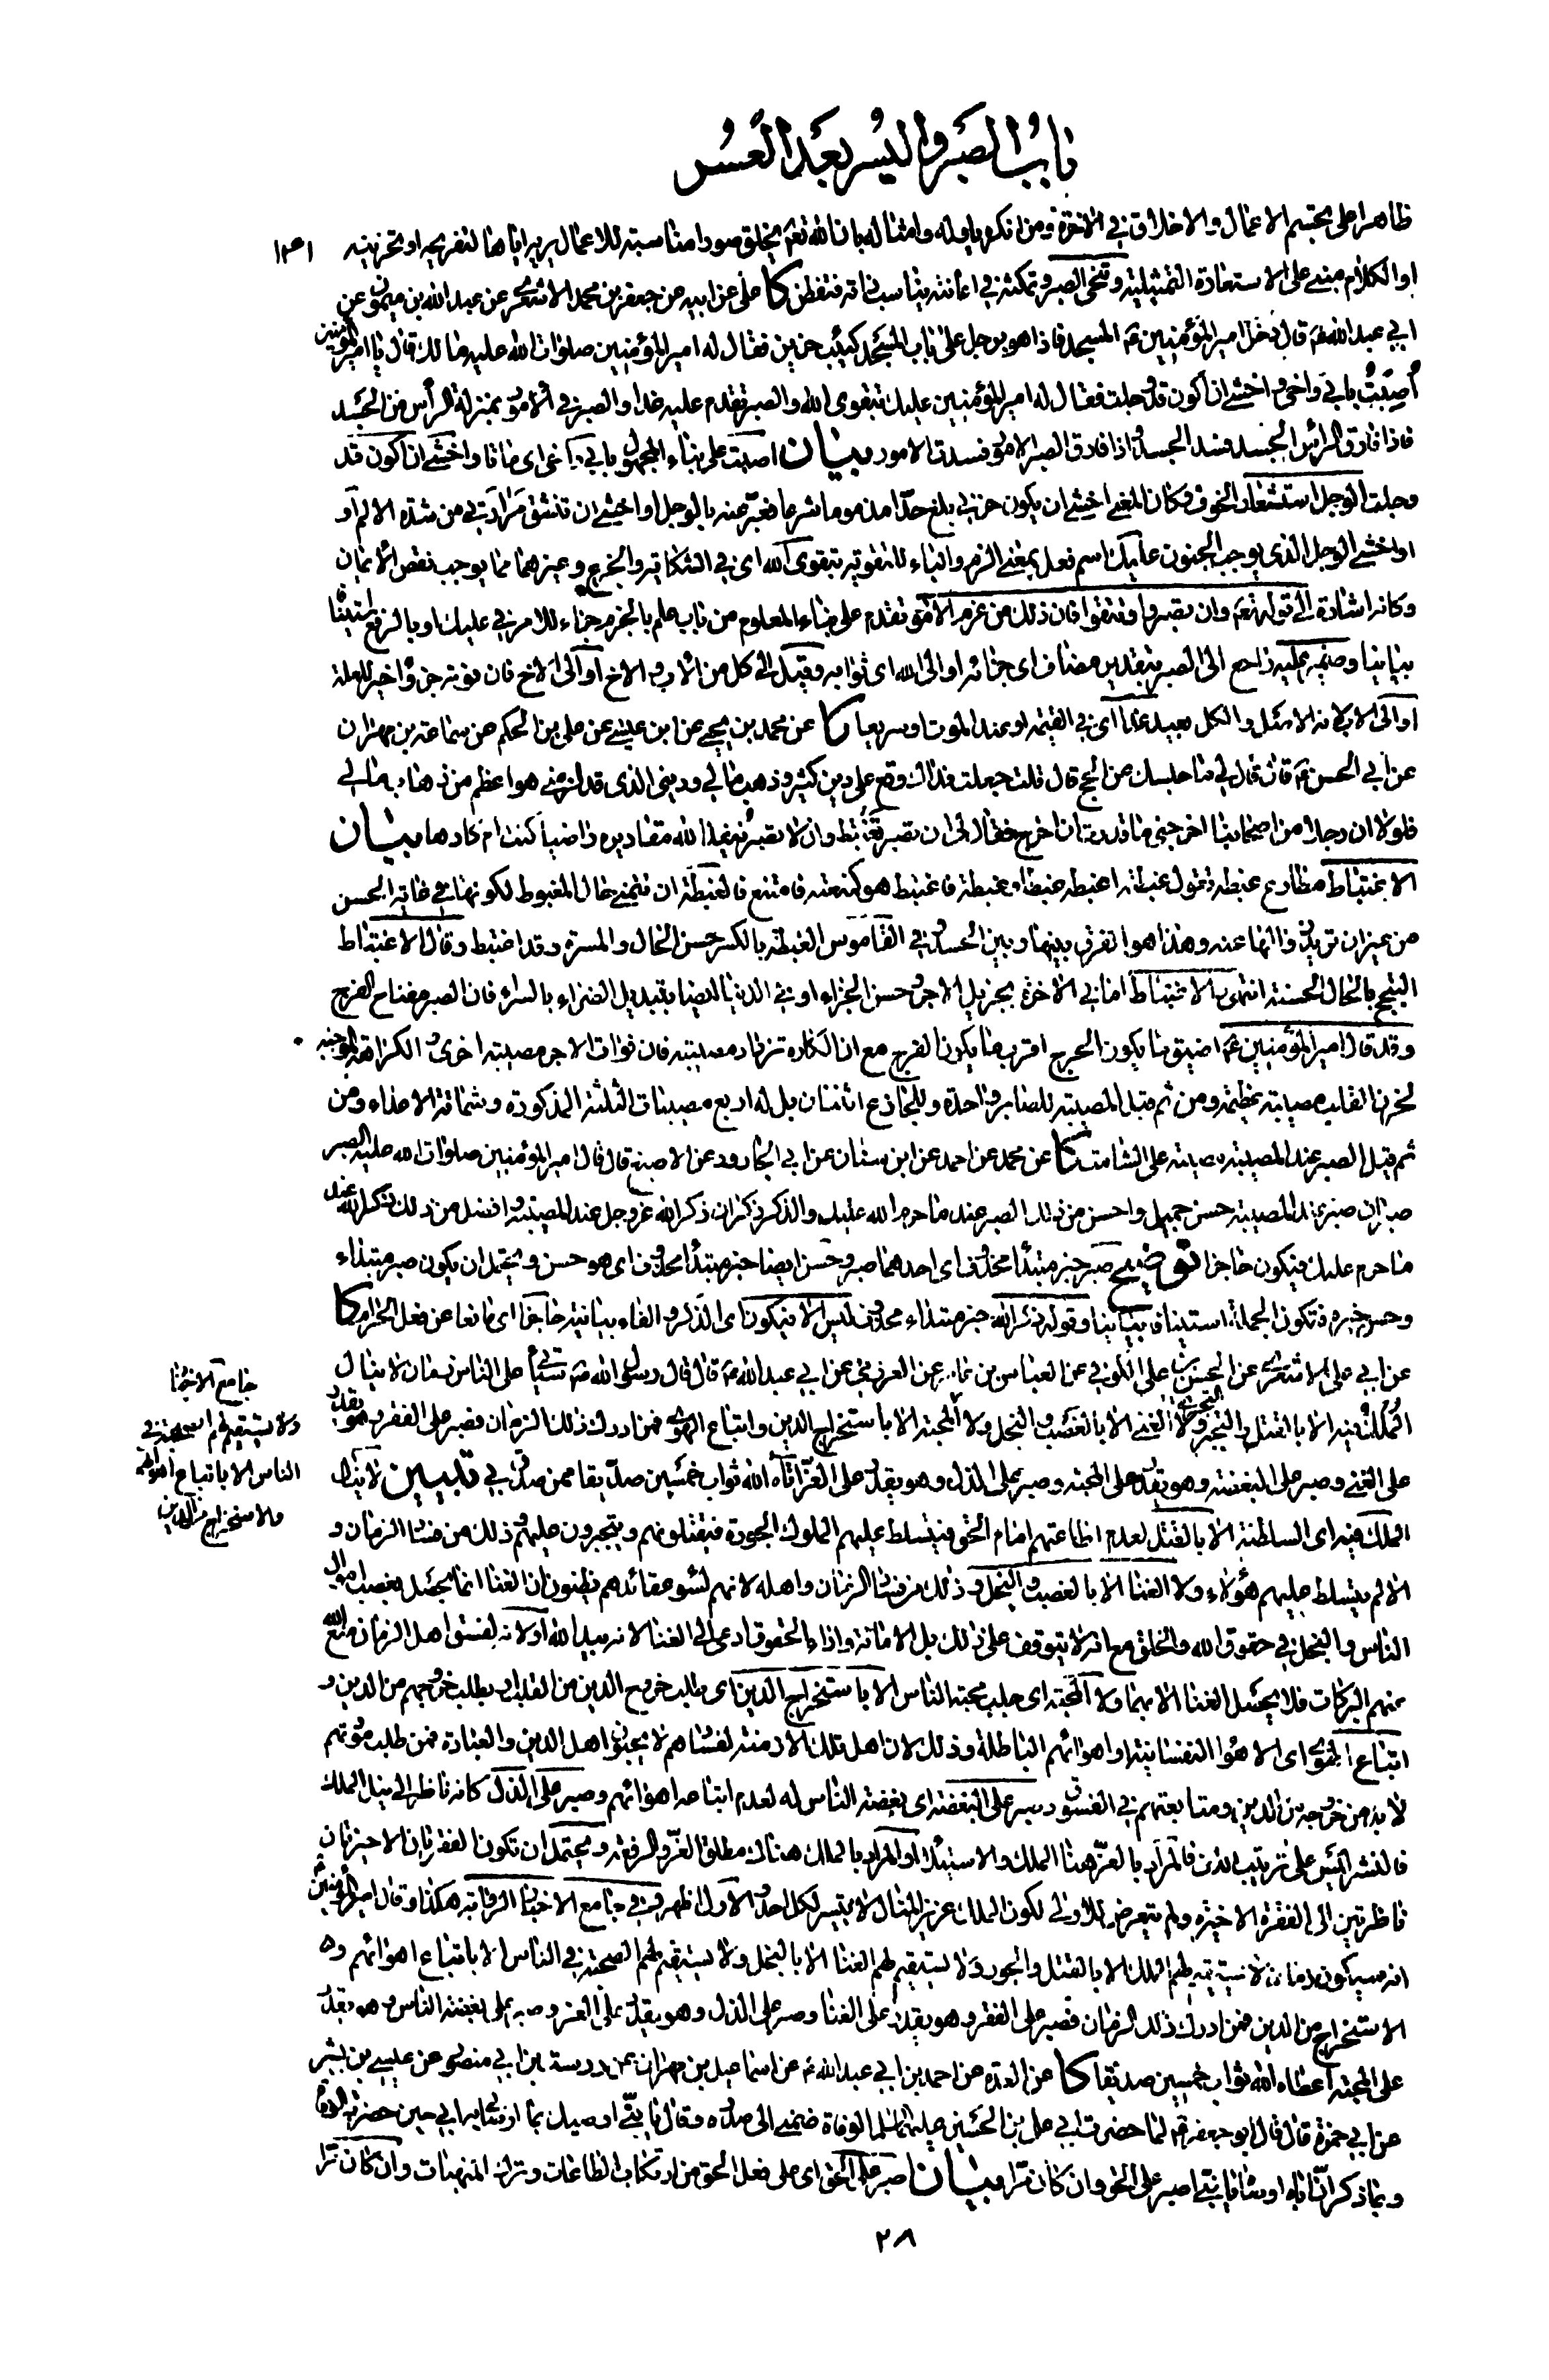 باب الصبر واليسر بعد العسر
ظاهرا على تجسم الاعمال والاخلاق في الاخرة ومن انكره ياوله وامثاله بان الله تعم يخلق صورا مناسبة للاعمال يريه اياها لتفريحه او تحزينه
١٣١
او الكلام مبني على الاستعارة التمثيلية وتنحى الصبر وتمكثه في اعانته يناسب ذاته فتفطن كا على عن ابيه عن جعفر بن محمد الاشعري عن عبد الله بن ميمون عن
ابي عبد الله ع قال دخل امير المؤمنين ع المسجد فاذا هو برجل على باب المسجد كئيب حزين فقال له امير المؤمنين صلوات الله عليه مالك قال يا امير المؤمنين
اصبت بابي واخي واخشى ان اكون قد وجلت فقال له امير المؤمنين عليك بتقوى الله والصبر تقدم عليه غدا والصبر في الامور بمنزلة الراس من الجسد
فاذا فارق الراس الجسد فسد الجسد واذا فارق الصبر الامور فسدت الامور بيان اصبت على بناء المجهول بابي واخي اى ماتا واخشى ان اكون قد
وجلت الوجل استشعار الخوف وكان المعنى اخشى ان يكون حزني بلغ حدا مذموما شرعا فعبر عنه بالوجل او اخشى ان تنشق مرارتي من شدة الالم او
او اخشى الوجل الذي يوجب الجنون عليك اسم فعل بمعنى الزم والباء للتقوية بتقوى الله اى في الشكاية والجزع وغيرهما مما يوجب نقص الايمان
وكانه اشارة الى قوله تعم وان تصبروا وتتقوا فان ذلك من عزم الامور تقدم على بناء المعلوم من باب علم بالجزم جزاء للامر في عليك او بالرفع استينافا
بيانيا وضمير عليه راجع الى الصبر بتقدير مضاف اى جزائه او الى الله اى ثوابه وقيل الى كل من الاب والاخ او الى الاخ فان فوته جزء اخير للعلة
او الى الاب لانه الاصل والكل بعيد غدا اى في القيمة او عند الموت او سريعا كا عن محمد بن يحيى عن ابن عيسى عن علي بن الحكم عن سماعة بن مهران
عن ابي الحسن ع قال قال لي ما حبسك عن الحج قال قلت جعلت فداك وقع علي دين كثير وذهب مالي وديني الذي قد لزمني هو اعظم من ذهاب مالي
فلولا ان رجلا من اصحابنا اخرجني ما قدرت ان اخرج فقال لي ان تصبر تغتبط وان لا تصبر ينفذ الله مقاديره راضيا كنت ام كارها بيان
الاغتباط مطاوع غبطه تقول غبطته اغبطه غبطا وغبطة فاغتبط هو كمنعته فامتنع والغبطة ان تتمنى حال المغبوط لكونها في غاية الحسن
من غير ان تريد زوالها عنه وهذا هو الفرق بينها وبين الحسد في القاموس الغبطة بالكسر حسن الحال والمسرة وقد اغتبط وقال الاغتباط
التبجح بالحال الحسنة انتهى والاغتباط اما في الاخرة بجزيل الاجر وحسن الجزاء او في الدنيا ايضا بتبديل الضراء بالسراء فان الصبر مفتاح الفرج
وقد قال امير المؤمنين ع اضيق ما يكون الحرج اقرب ما يكون الفرج مع ان الكاره تزداد مصيبته فان فوات الاجر مصيبة اخرى والكراهة الموجبة
لحزن القلب مصيبة عظيمة ومن ثم قيل المصيبة للصابر واحدة وللجازع اثنتان بل له اربع مصيبات الثلثة المذكورة وشماتة الاعداء ومن
ثم قيل الصبر عند المصيبة مصيبة على الشامت كا عن محمد عن احمد عن ابن سنان عن ابي الجارود عن الاصبغ قال قال امير المؤمنين صلوات الله عليه الصبر
صبران صبر عند المصيبة حسن جميل واحسن من ذلك الصبر عند ما حرم الله عليك والذكر ذكران ذكر الله عز وجل عند المصيبة وافضل من ذلك ذكر الله عند
ما حرم عليك فيكون حاجزا توضيح صبر خبر مبتدأ محذوف اى احدهما صبر وحسن ايضا خبر مبتدأ محذوف اى هو حسن ويحتمل ان يكون صبر مبتداء
وحسن خبره فتكون الجملة استينافا بيانيا وقوله ذكر الله خبر مبتداء محذوف ليس الا فيكون اى الذكر والفاء بيانية حاجزا اى مانعا عن فعل الحرام كا
عن ابي علي الاشعري عن الحسن بن علي الكوفي عن العباس بن عامر عن العرزمي عن ابي عبد الله ع قال قال رسول الله ص سيأتي على الناس زمان لا ينال
الملك فيه الا بالقتل والتجبر ولا الغنى الا بالغصب والبخل ولا المحبة الا باستخراج الدين واتباع الهوى فمن ادرك ذلك الزمان فصبر على الفقر وهو يقدر
على الغنى وصبر على البغضة وهو يقدر على المحبة وصبر على الذل وهو يقدر على العز اتاه الله ثواب خمسين صديقا ممن صدق بي تبيين لا ينال
الملك فيه اى السلطنة الا بالقتل لعدم اطاعتهم امام الحق فيتسلط عليهم الملوك الجورة فيقتلونهم ويتجبرون عليهم وذلك من فساد الزمان و
الا لم يتسلط عليهم هؤلاء ولا الغنا الا بالغصب والبخل وذلك من فساد الزمان واهله لانهم لسوء عقائدهم يظنون ان الغنا انما يحصل بغصب اموال
الناس والبخل في حقوق الله والخلق مع انه لا يتوقف على ذلك بل الامانة واداء الحقوق ادعى الى الغنا لانه بيد الله او لانه لفسق اهل الزمان منع الله
منهم البركات فلا يحصل الغنا الا بهما ولا المحبة اى جلب محبة الناس الا باستخراج الدين اى طلب خروج الدين من القلب او بطلب خروجهم من الدين و
اتباع الهوى اى الاهواء النفسانية او اهوائهم الباطلة وذلك لان اهل تلك الازمنة لفسادهم لا يحبون اهل الدين والعبادة فمن طلب مودتهم
لا بد من خروجه من الدين ومتابعتهم في الفسوق وصبر على البغضة اى بغضة الناس له لعدم اتباعه اهوائهم وصبر على الذل كانه ناظر الى نيل الملك
فالنشر ليس على ترتيب اللف فالمراد بالعز هنا الملك والاستيلاء او المراد بالملك هناك مطلق العز والرفعة ويحتمل ان تكون الفقرتان الاخيرتان
ناظرتين الى الفقرة الاخيرة ولم يتعرض للاولى لكون الملك عزيز المنال لا يتيسر لكل احد والاول اظهر وفي جامع الاخبار الرواية هكذا وقال امير المؤمنين
انه سيكون زمان لا يستقيم لهم الملك الا بالقتل والجور ولا يستقيم لهم الغنا الا بالبخل ولا يستقيم لهم الصحبة في الناس الا باتباع اهوائهم و
الاستخراج من الدين فمن ادرك ذلك الزمان فصبر على الفقر وهو يقدر على الغنا وصبر على الذل وهو يقدر على العز وصبر على بغضة الناس وهو يقدر
على المحبة اعطاه الله ثواب خمسين صديقا كا عن العدة عن احمد بن ابي عبد الله ع عن اسماعيل بن مهران عن درست بن ابي منصور عن عيسى بن بشير
عن ابي حمزة قال قال ابو جعفر ع لما حضرت ابي علي بن الحسين عليهما السلم الوفاة ضمني الى صدره وقال يا بني اوصيك بما اوصاني به ابي حين حضرته الوفاة
وبما ذكر ان اباه اوصاه يا بني اصبر على الحق وان كان مرا بيان صبر على الحق اى على فعل الحق من ارتكاب الطاعات وترك المنهيات وان كان مرا
جامع الاخبار
ولا يستقيم لهم الصحبة في
الناس الا باتباع اهوائهم
والاستخراج من الدين
٢٨